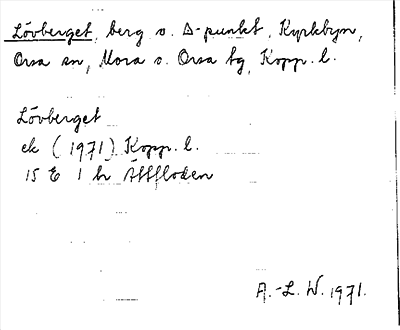 Lövberget, berg o. Δ-punkt, Kyrkbyn,
Orsa sn, Mora o. Orsa tg, Kopp. l.
Lövberget
ek (1971) Kopp. l.
15 E 1 h
A.-L. W. 1971.